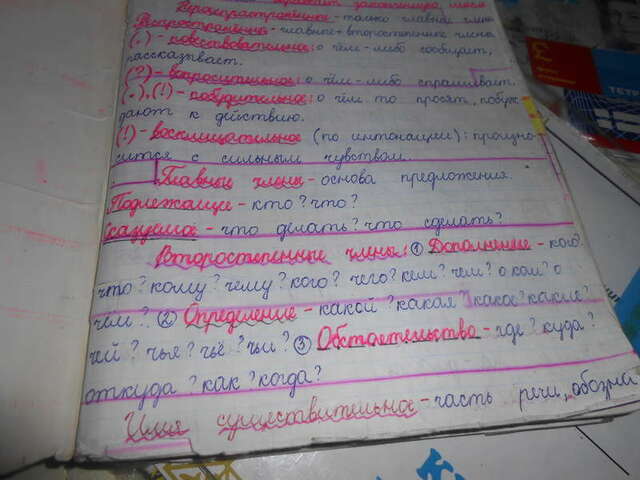 выражает законченную мысль
Нераспространённое - только главные члены
Распространённое - главные + второстепенные члены
(.) - повествовательные: о чём-либо сообщает,
рассказывает.
(?) - вопросительные: о чём-либо спрашивает.
(.), (!) - побудительные: о чём то просят, побуж
дают к действию.
(!) - восклицательное (по интонации): произно-
сится с сильным чувством.
Главные члены - основа предложения.
Подлежащие - кто? что?
Сказуемое - что делать? что сделать?
Второстепенные члены: ① Дополнение - кого?
что? кому? чему? кого? чего? кем? чем? о ком? о
чём? ② Определение - какой? какая? какое? какие?
чей? чья? чьё? чьи? ③ Обстоятельство - где? куда?
откуда? как? когда?
Имя существительное - часть речи, обозна
ТЕТР